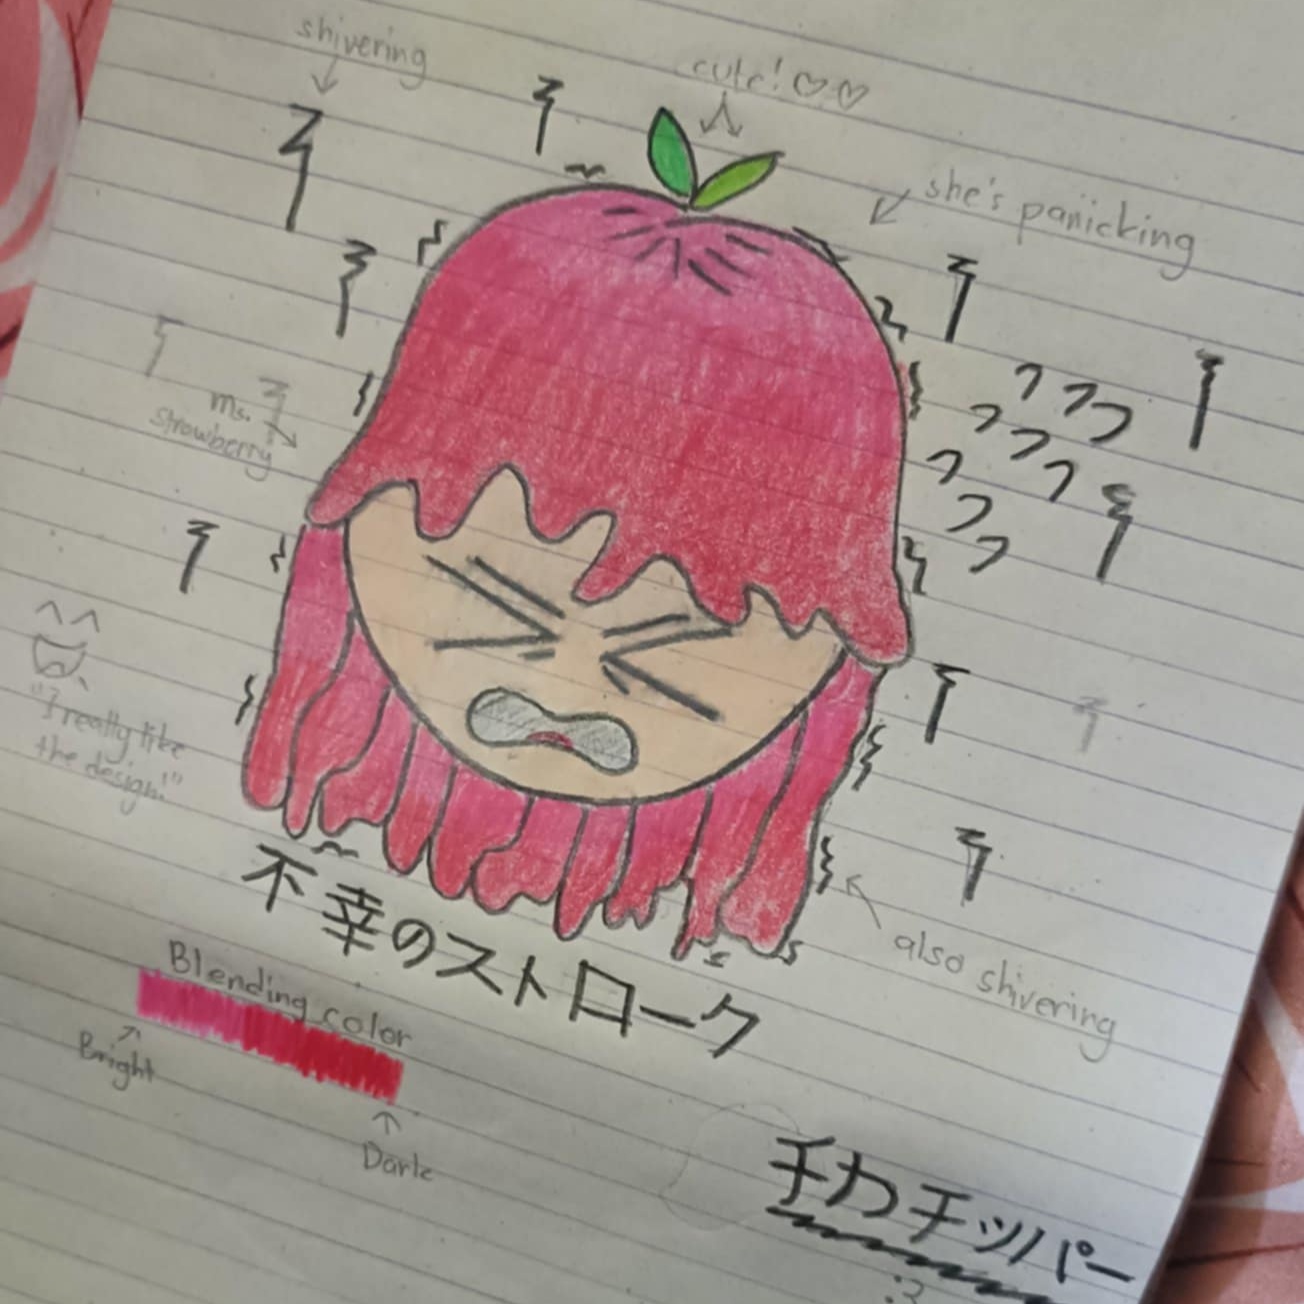 shivering
cute! ♡♡
she's panicking
ms.
strawberry
"I really like
the design!"
also shivering
不幸のストローク
Blending color
Bright
Dark
チカチッパー
:3